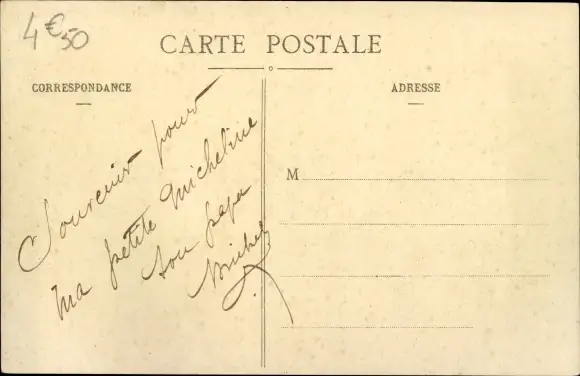 4€50
CARTE POSTALE
CORRESPONDANCE
ADRESSE
Souvenir pour
ma petite Micheline
son papa
Michel
M